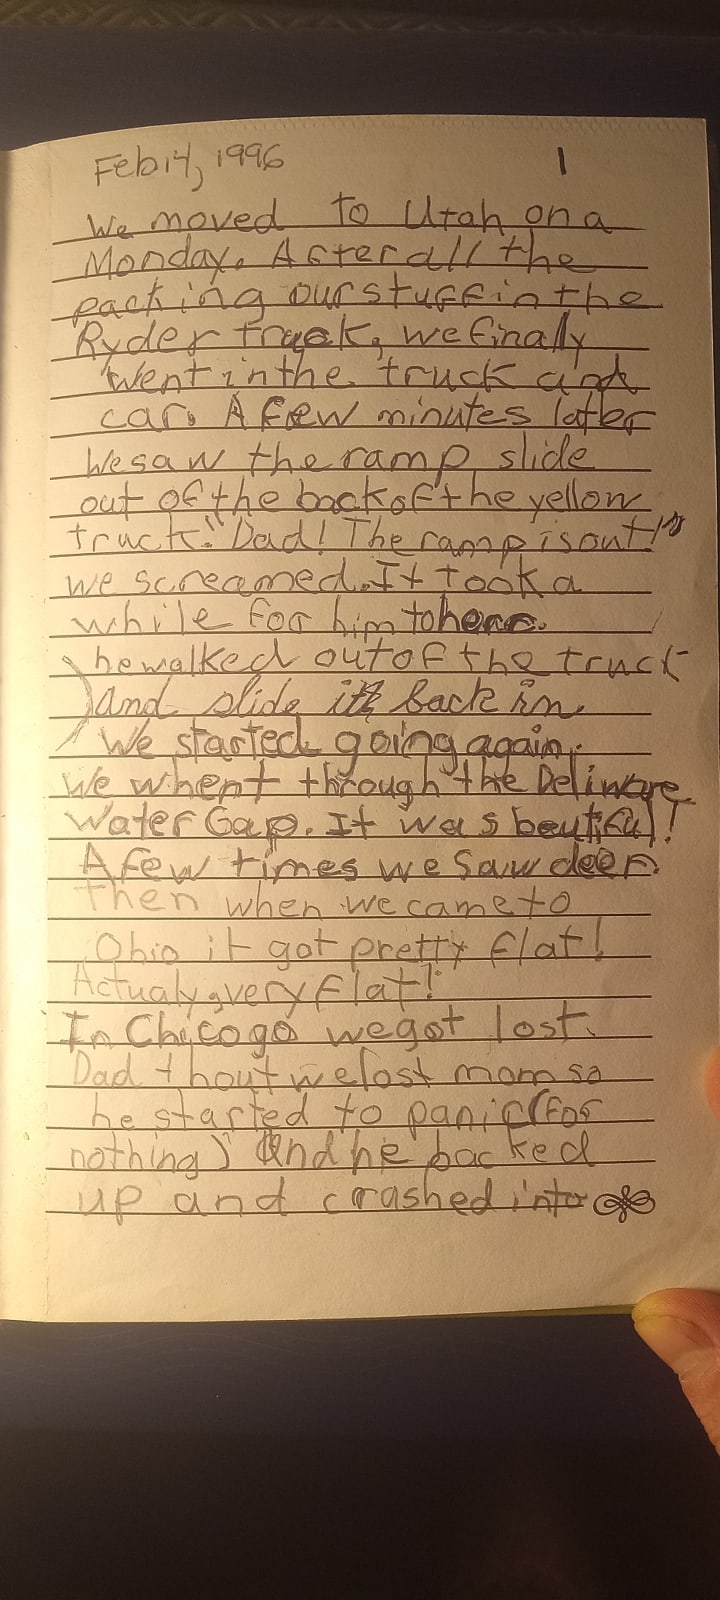 Feb 14, 1996 1
We moved to Utah on a
Monday. After all the
packing our stuff in the
Ryder truck, we finally
went in the truck and
car. A few minutes later
We saw the ramp slide
out of the back of the yellow
truck. "Dad! The ramp is out!"
we screamed. It took a
while for him to hear.
he walked out of the truck
and slide it back in.
We started going again.
We whent through the Deliware
Water Gap. It was beutiful!
A few times we saw deer.
Then when we came to
Ohio it got pretty flat!
Actualy, very flat!
In Chicogo we got lost.
Dad thout we lost mom so
he started to panic (for
nothing) And he backed
up and crashed into